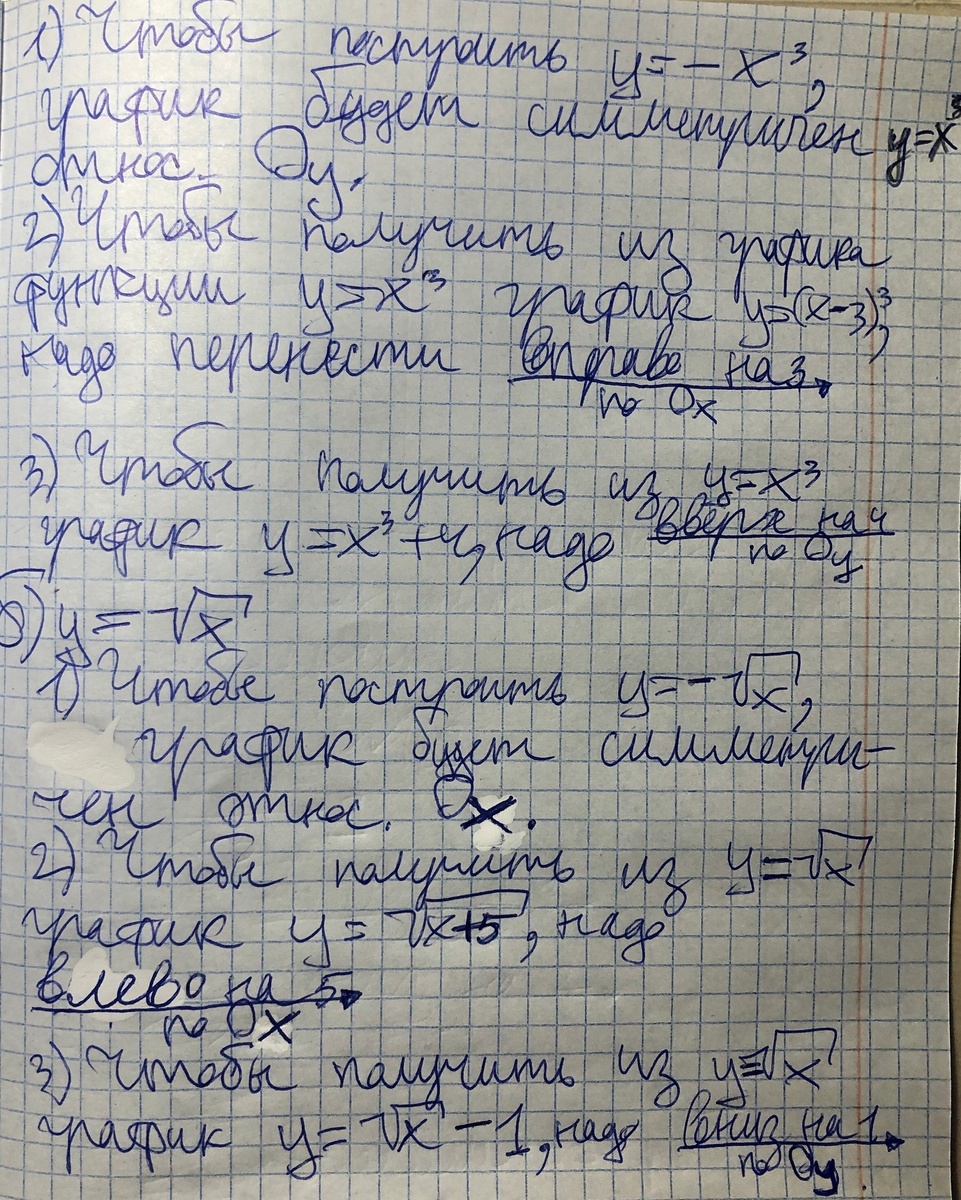 1) Чтобы построить y=-x³,
график будет симметричен y=x³
относ. Oy.
2) Чтобы получить из графика
функции y=x³ график y=(x-3)³,
надо перенести вправо на 3
по Ox
3) Чтобы получить из y=x³
график y=x³+4, надо вверх на 4
по Oy
б) y=√x
1) Чтобы построить y=-√x,
график будет симметри-
чен относ. Ox.
2) Чтобы получить из y=√x
график y=√x+5, надо
влево на 5
по Ox
3) Чтобы получить из y=√x
график y=√x-1, надо вниз на 1
по Oy